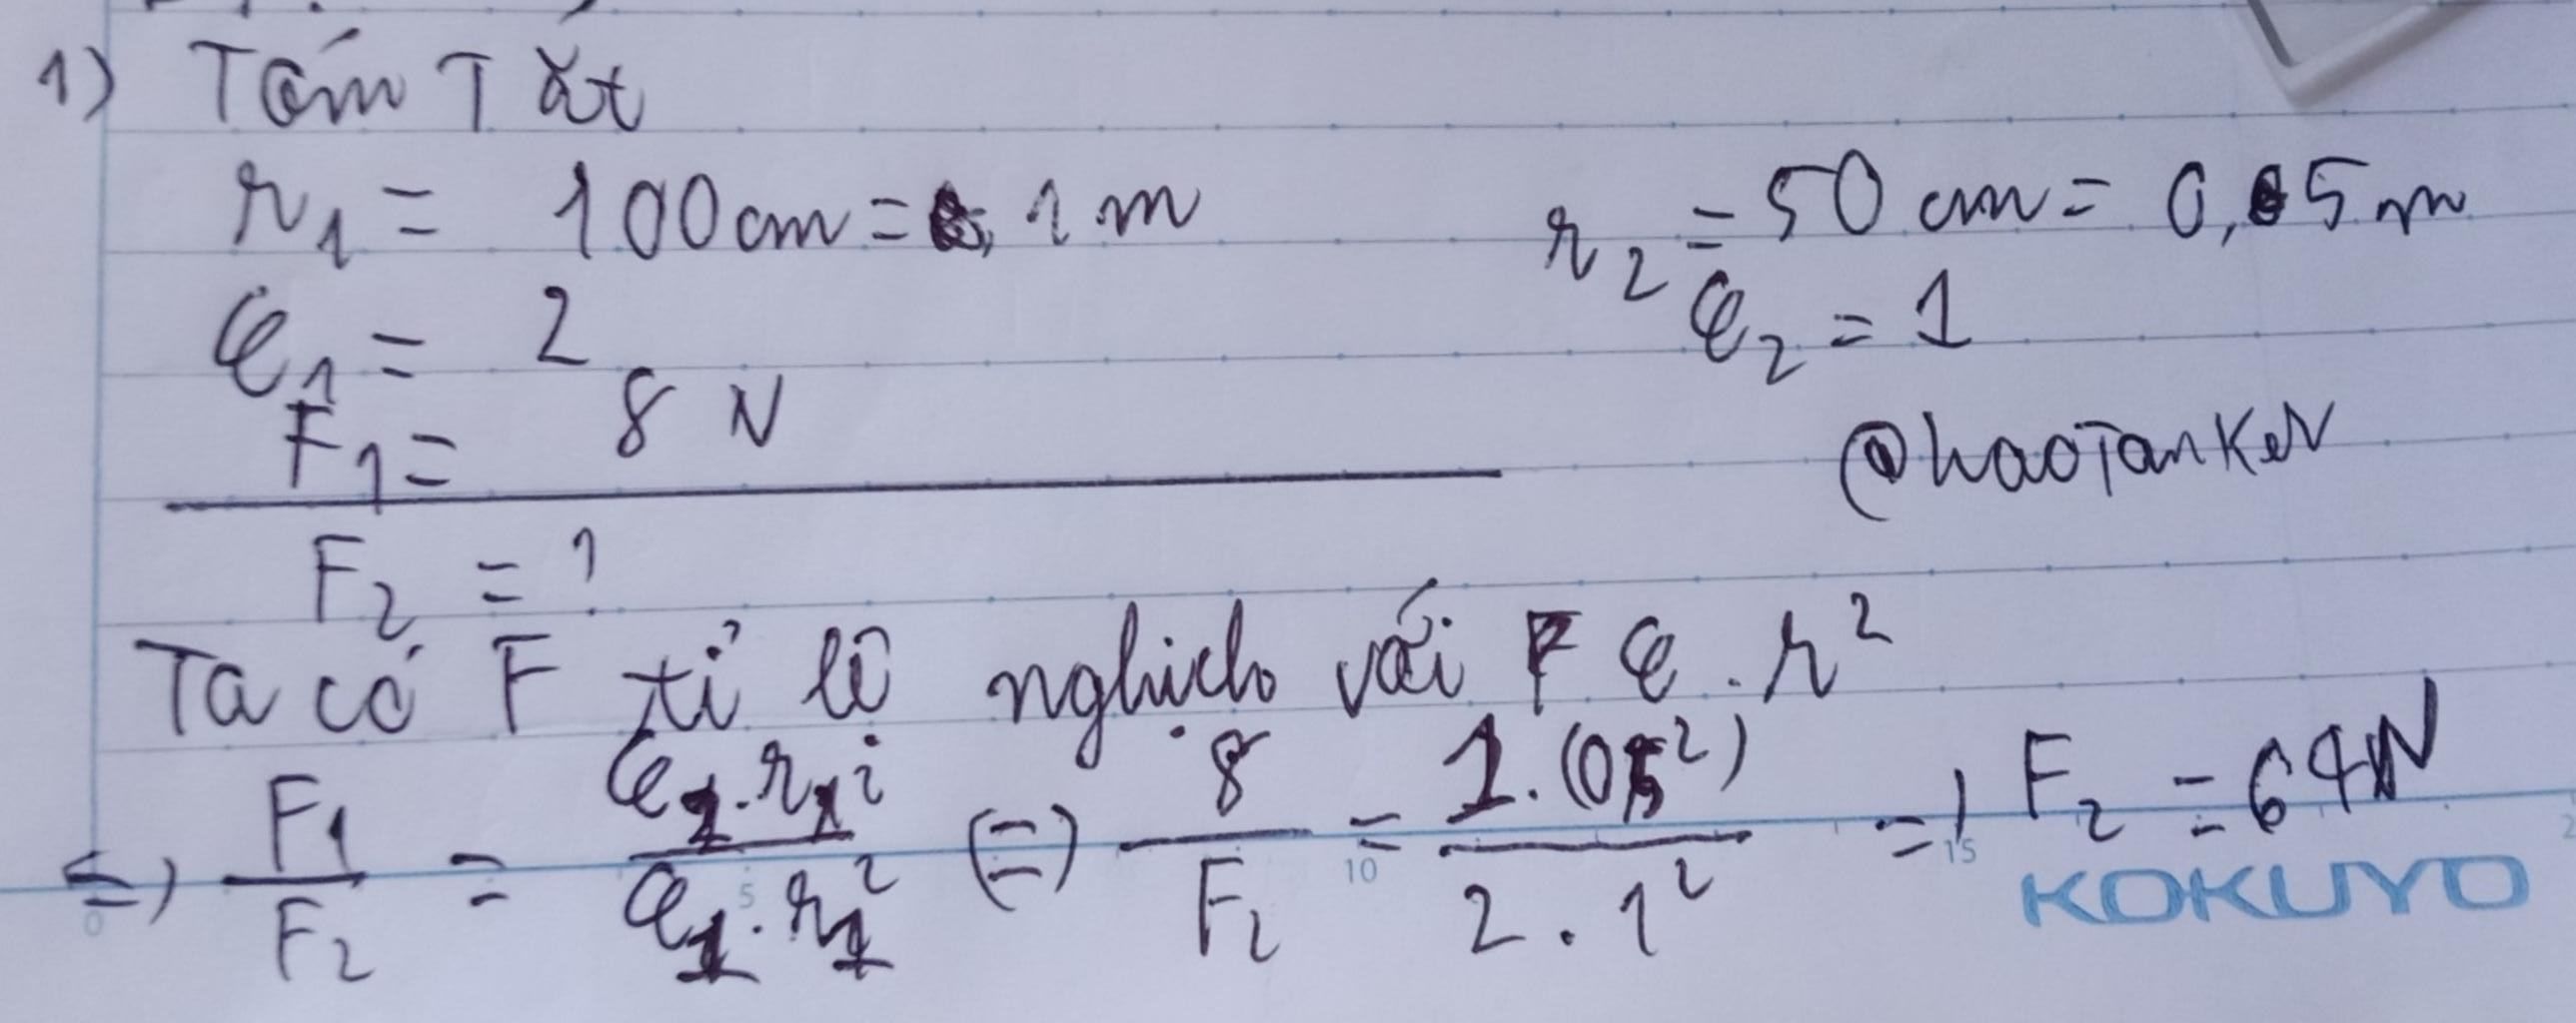 1) Tóm Tắt
r₁ = 100cm = 1m
r₂ = 50 cm = 0,5m
ε₁ = 2
ε₂ = 1
F₁ = 8 N
@haoTanker
F₂ = ?
Ta có F tỉ lệ nghịch với ε . r²
<=> F₁/F₂ = ε₂.r₂²/ε₁.r₁² (=) 8/F₂ = 1.(05²)/2.1² => F₂ = 64N
0 5 10 15
KOKUYO